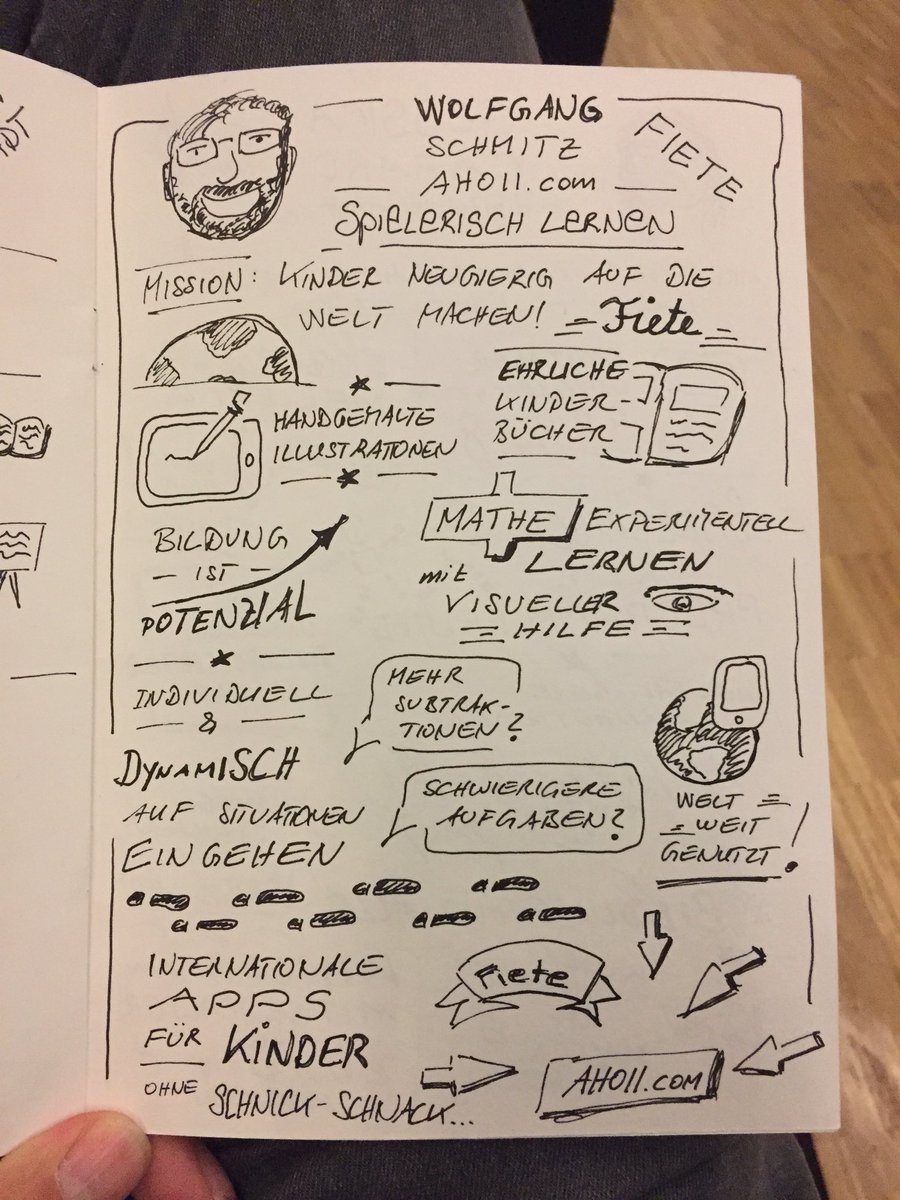 WOLFGANG
SCHMITZ
AHOII.com
FIETE
SPIELERISCH LERNEN
MISSION: KINDER NEUGIERIG AUF DIE
WELT MACHEN!
Fiete
HANDGEMALTE
ILLUSTRATIONEN
EHRLICHE
KINDER-
BÜCHER
BILDUNG
IST
POTENZIAL
MATHE EXPERIMENTELL
LERNEN
mit
VISUELLER
HILFE
INDIVIDUELL
&
DYNAMISCH
AUF SITUATIONEN
EINGEHEN
MEHR
SUBTRAK-
TIONEN?
SCHWIERIGERE
AUFGABEN?
WELT
WEIT
GENUTZT!
INTERNATIONALE
APPS
FÜR KINDER
OHNE SCHNICK-SCHNACK...
Fiete
AHOII.COM